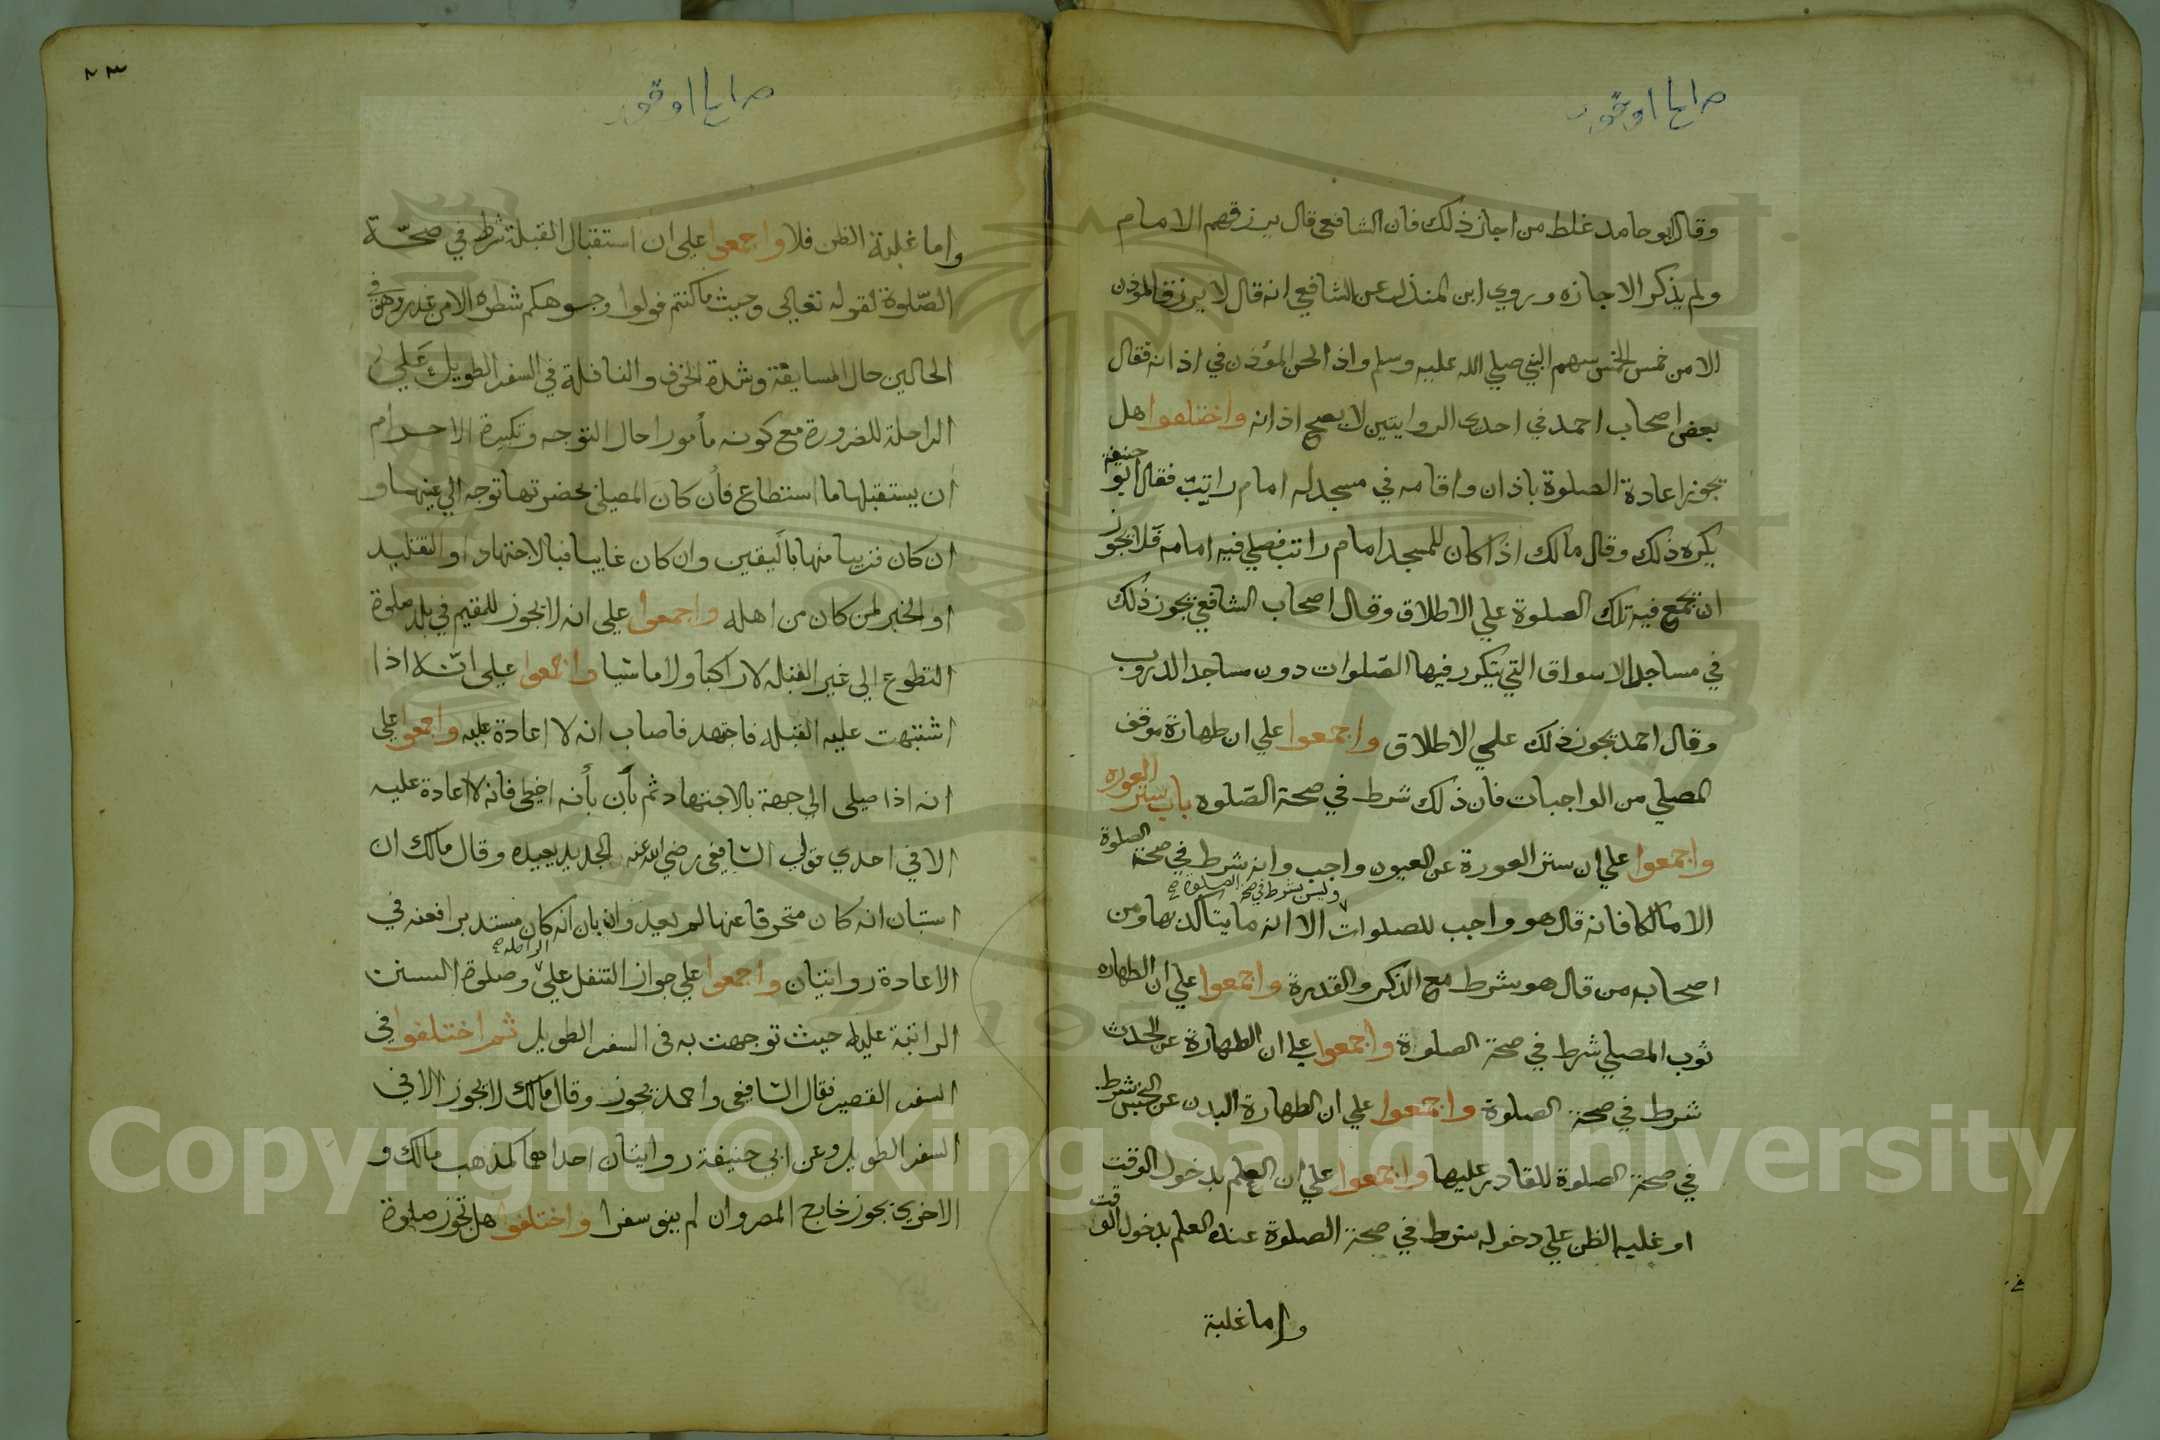 وقال ابو حامد غلط من اجاز ذلك فان الشافعي قال يرزقهم الامام
ولم يذكر الاجازه وروي ابن المنذر عن الشافعي انه قال لا يرزق المؤذن
الا من خمس الخمس سهم النبي صلي الله عليه وسلم واذا لحن المؤذن في اذانه فقال
بعض اصحاب احمد في احدى الروايتين لا يصح اذانه واختلفوا هل
يجوز اعادة الصلوة باذان واقامه في مسجد له امام راتب فقال ابو حنيفة
يكره ذلك وقال مالك اذا كان للمسجد امام راتب فصلي فيه امامه فلا يجوز
ان تجمع فيه تلك الصلوة علي الاطلاق وقال اصحاب الشافعي يجوز ذلك
في مساجد الاسواق التي يتكرر فيها الصلوات دون مساجد الدروب
وقال احمد يجوز ذلك علي الاطلاق واجمعوا علي ان طهارة موقف
المصلي من الواجبات فان ذلك شرط في صحة الصلوه باب ستر العوره
واجمعوا علي ان ستر العورة عن العيون واجب وانه شرط في صحة الصلوة
وليس بشرط في صحة الصلوة صح
الا مالكا فانه قال هو واجب للصلوات الا انه مما يتاكد بها ومن
اصحابه من قال هو شرط مع الذكر والقدرة واجمعوا علي ان الطهاره
ثوب المصلي شرط في صحة الصلوة واجمعوا علي ان الطهارة عن الحدث
شرط في صحة الصلوة واجمعوا علي ان الطهارة البدن عن النجس شرط
في صحة الصلوة للقادر عليها واجمعوا علي ان العلم بدخول الوقت
او غلبه الظن علي دخوله شرط في صحة الصلوة عنده العلم بدخول الوقت
واما غلبة
٢٣
واما غلبة الظن فلا واجمعوا علي ان استقبال القبلة شرط في صحة
الصلوة لقوله تعالي وحيث ما كنتم فولوا وجوهكم شطره الا من عذر وهو في
الحالين حال المسايفة وشدة الخوف والنافلة في السفر الطويل علي
الراحلة للضرورة مع كونه مأمورا حال التوجه وتكبيرة الاحرام
ان يستقبلها ما استطاع فأن كان المصلي بحضرتها توجه الي عينها و
ان كان قريبا منها باليقين وان كان غايبا فبالاجتهاد او التقليد
او الخبر لمن كان من اهله واجمعوا علي انه لا يجوز للمقيم في بلد صلوة
التطوع الي غير القبله لا راكبا ولا ماشيا واجمعوا علي انه اذا
اشتبهت عليه القبله فاجتهد فاصاب انه لا اعادة عليه واجمعوا علي
انه اذا صلي الي جهة بالاجتهاد ثم بأن بأنه اخطي فانه لا اعادة عليه
الا في احدي قولي الشافعي رضي الله عنه الجديد يعيده وقال مالك ان
استبان انه كان متحرفا عنها لم يعيد وان بان انه كان مستدبرا فعنه في
الاعادة روايتان واجمعوا علي جواز التنفل علي الراحله صح وصلوة السنن
الراتبة عليها حيث توجهت به في السفر الطويل ثم اختلفوا في
السفر القصير فقال الشافعي واحمد يجوز وقال مالك لا يجوز الا في
السفر الطويل وعن ابي حنيفة روايتان احداهما كمذهب مالك و
الاخري يجوز خارج المصر وان لم ينو سفرا واختلفوا هل تجوز صلوة
Copyright © King Saud University